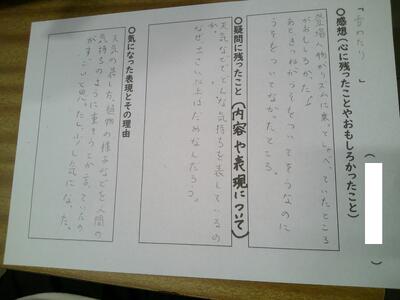 「雪わたり」
◎感想(心に残ったことやおもしろかったこと)
登場人物がリズムに乗ってしゃべっていたところ
がおもしろかった。
うそをついてなかったところ。
◎疑問に残ったこと(内容や表現について)
天気などでどんな気持ちを表しているの
か。
なぜ十二さい以上はだめなんだろう。
◎気になった表現とその理由
天気の表した、植物の様子などを人間の
気持ちのように書そうとか言っていたの
がすごいと思ったし少し気になった。